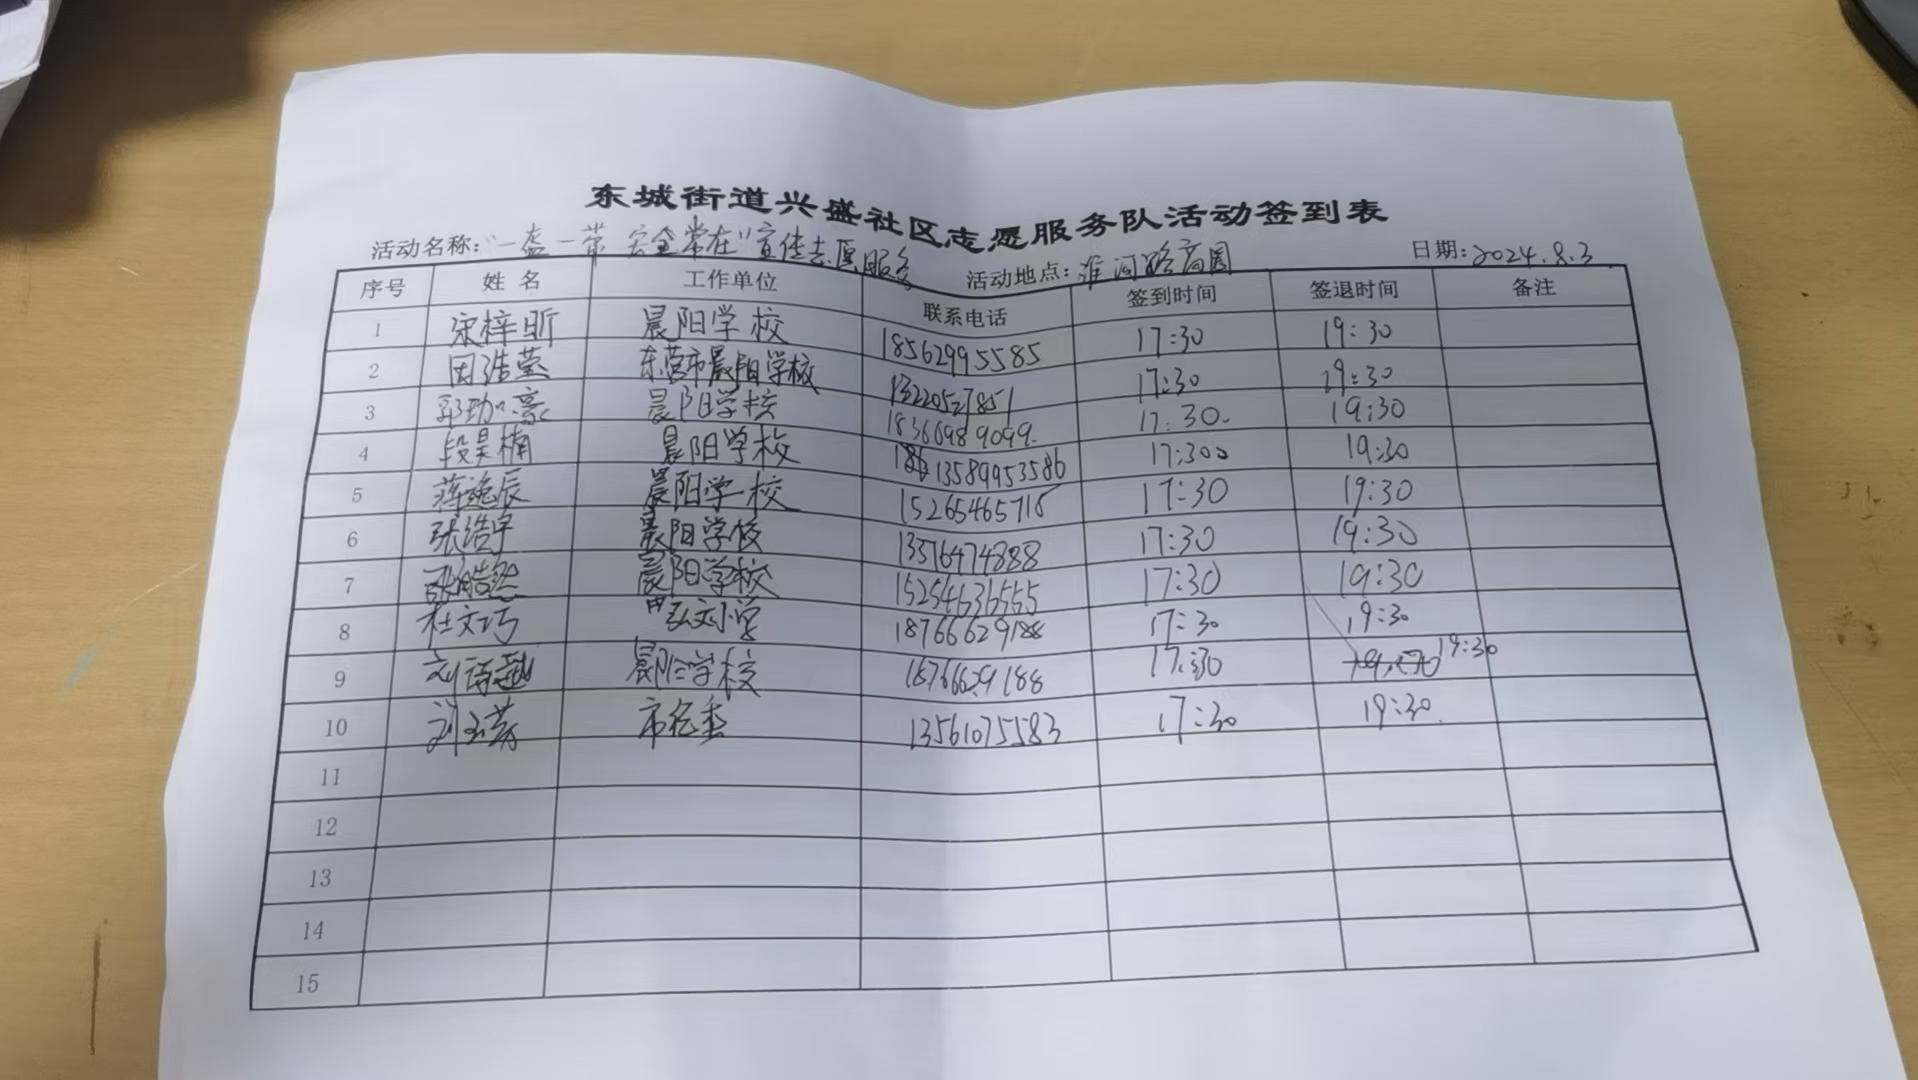 东城街道兴盛社区志愿服务队活动签到表
活动名称：“一盔一带 安全常在”宣传志愿服务 活动地点：淮河路商圈 日期：2024.8.3
序号 姓名 工作单位 联系电话 签到时间 签退时间 备注
1 宋梓昕 晨阳学校 18562995585 17:30 19:30
2 田浩莹 东营市晨阳学校 13220527851 17:30 19:30
3 郭勍豪 晨阳学校 18366989099 17:30 19:30
4 段昊楠 晨阳学校 13589953586 17:30 19:30
5 蒋逸辰 晨阳学校 15265465718 17:30 19:30
6 张浩宇 晨阳学校 13376474888 17:30 19:30
7 张皓然 晨阳学校 15254636555 17:30 19:30
8 杜文巧 弘文小学 18766629188 17:30 19:30
9 刘诗越 晨阳学校 18766629188 17:30 19:30
10 刘玉芬 市纪委 13561075583 17:30 19:30
11
12
13
14
15